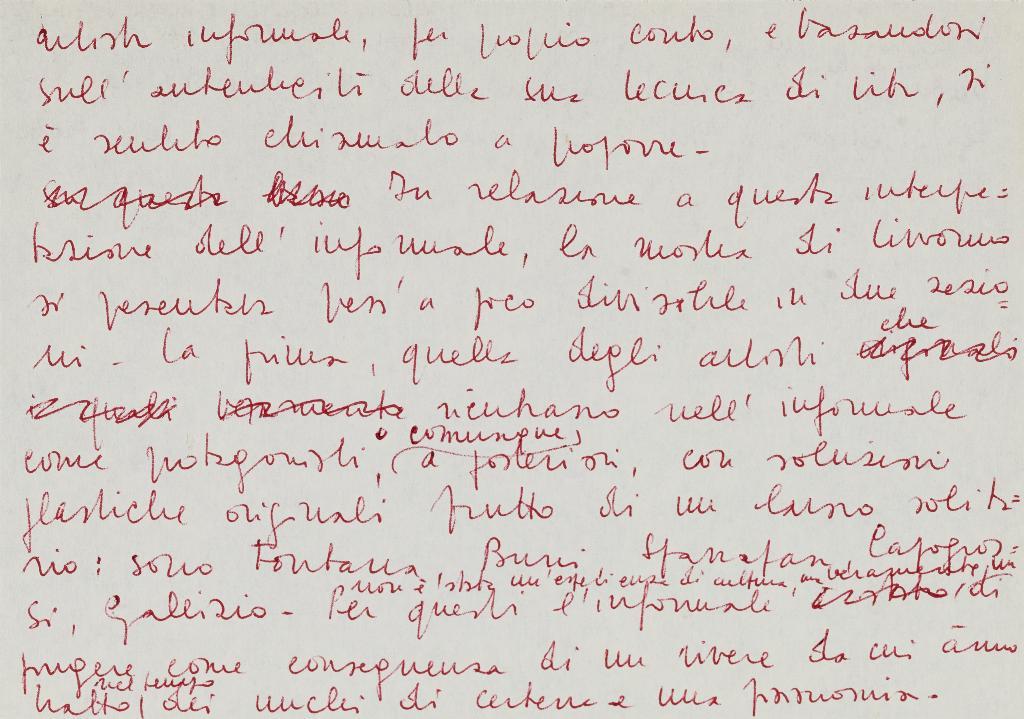 artista informale, per proprio conto, e basandosi
sull'autenticità della sua tecnica di vita, si
è sentito chiamato a proporre -
su questa base In relazione a questa interpre=
tazione dell'informale, la mostra di Livorno
si presenta press'a poco divisibile in due sezio=
ni - La prima, quella degli artisti che originali
i quali veramente rientrano nell'informale
come protagonisti, o comunque, a posteriori, con soluzioni
plastiche originali frutto di un lavoro solita=
rio: sono Fontana, Burri, Capogros=
non è stata un'esperienza di cultura, ma veramente un
si, Gallizio - Per questi l'informale di
pingere come conseguenza di un vivere da cui ànno
tratto, nel tempo dei nuclei di certezza e una